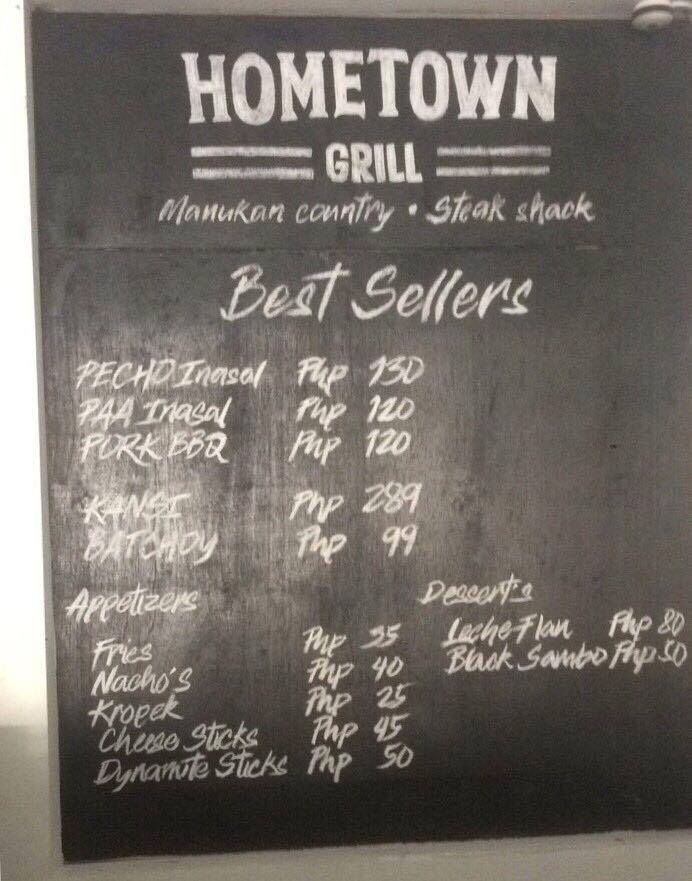 HOMETOWN
GRILL
Manukan country • Steak shack
Best Sellers
PECHO Inasal Php 130
PAA Inasal Php 120
PORK BBQ Php 120
KANSI Php 289
BATCHOY Php 99
Appetizers
Fries Php 35
Nacho's Php 40
Kropek Php 25
Cheese Sticks Php 45
Dynamite Sticks Php 50
Dessert's
Leche Flan Php 80
Black Sambo Php 50